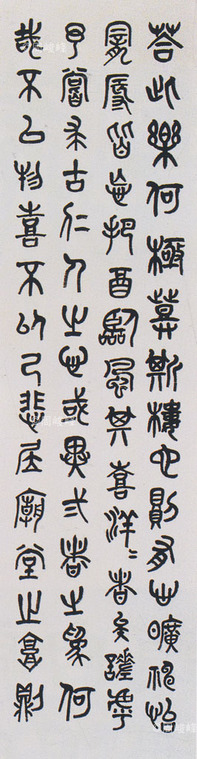 荅此樂何極登斯樓也則有心曠神怡
寵辱皆忘把酉臨風其喜洋〻者矣嗟乎
予嘗求古仁人之心或異弍者之為何
哉不以物喜不以己悲居廟堂之高則